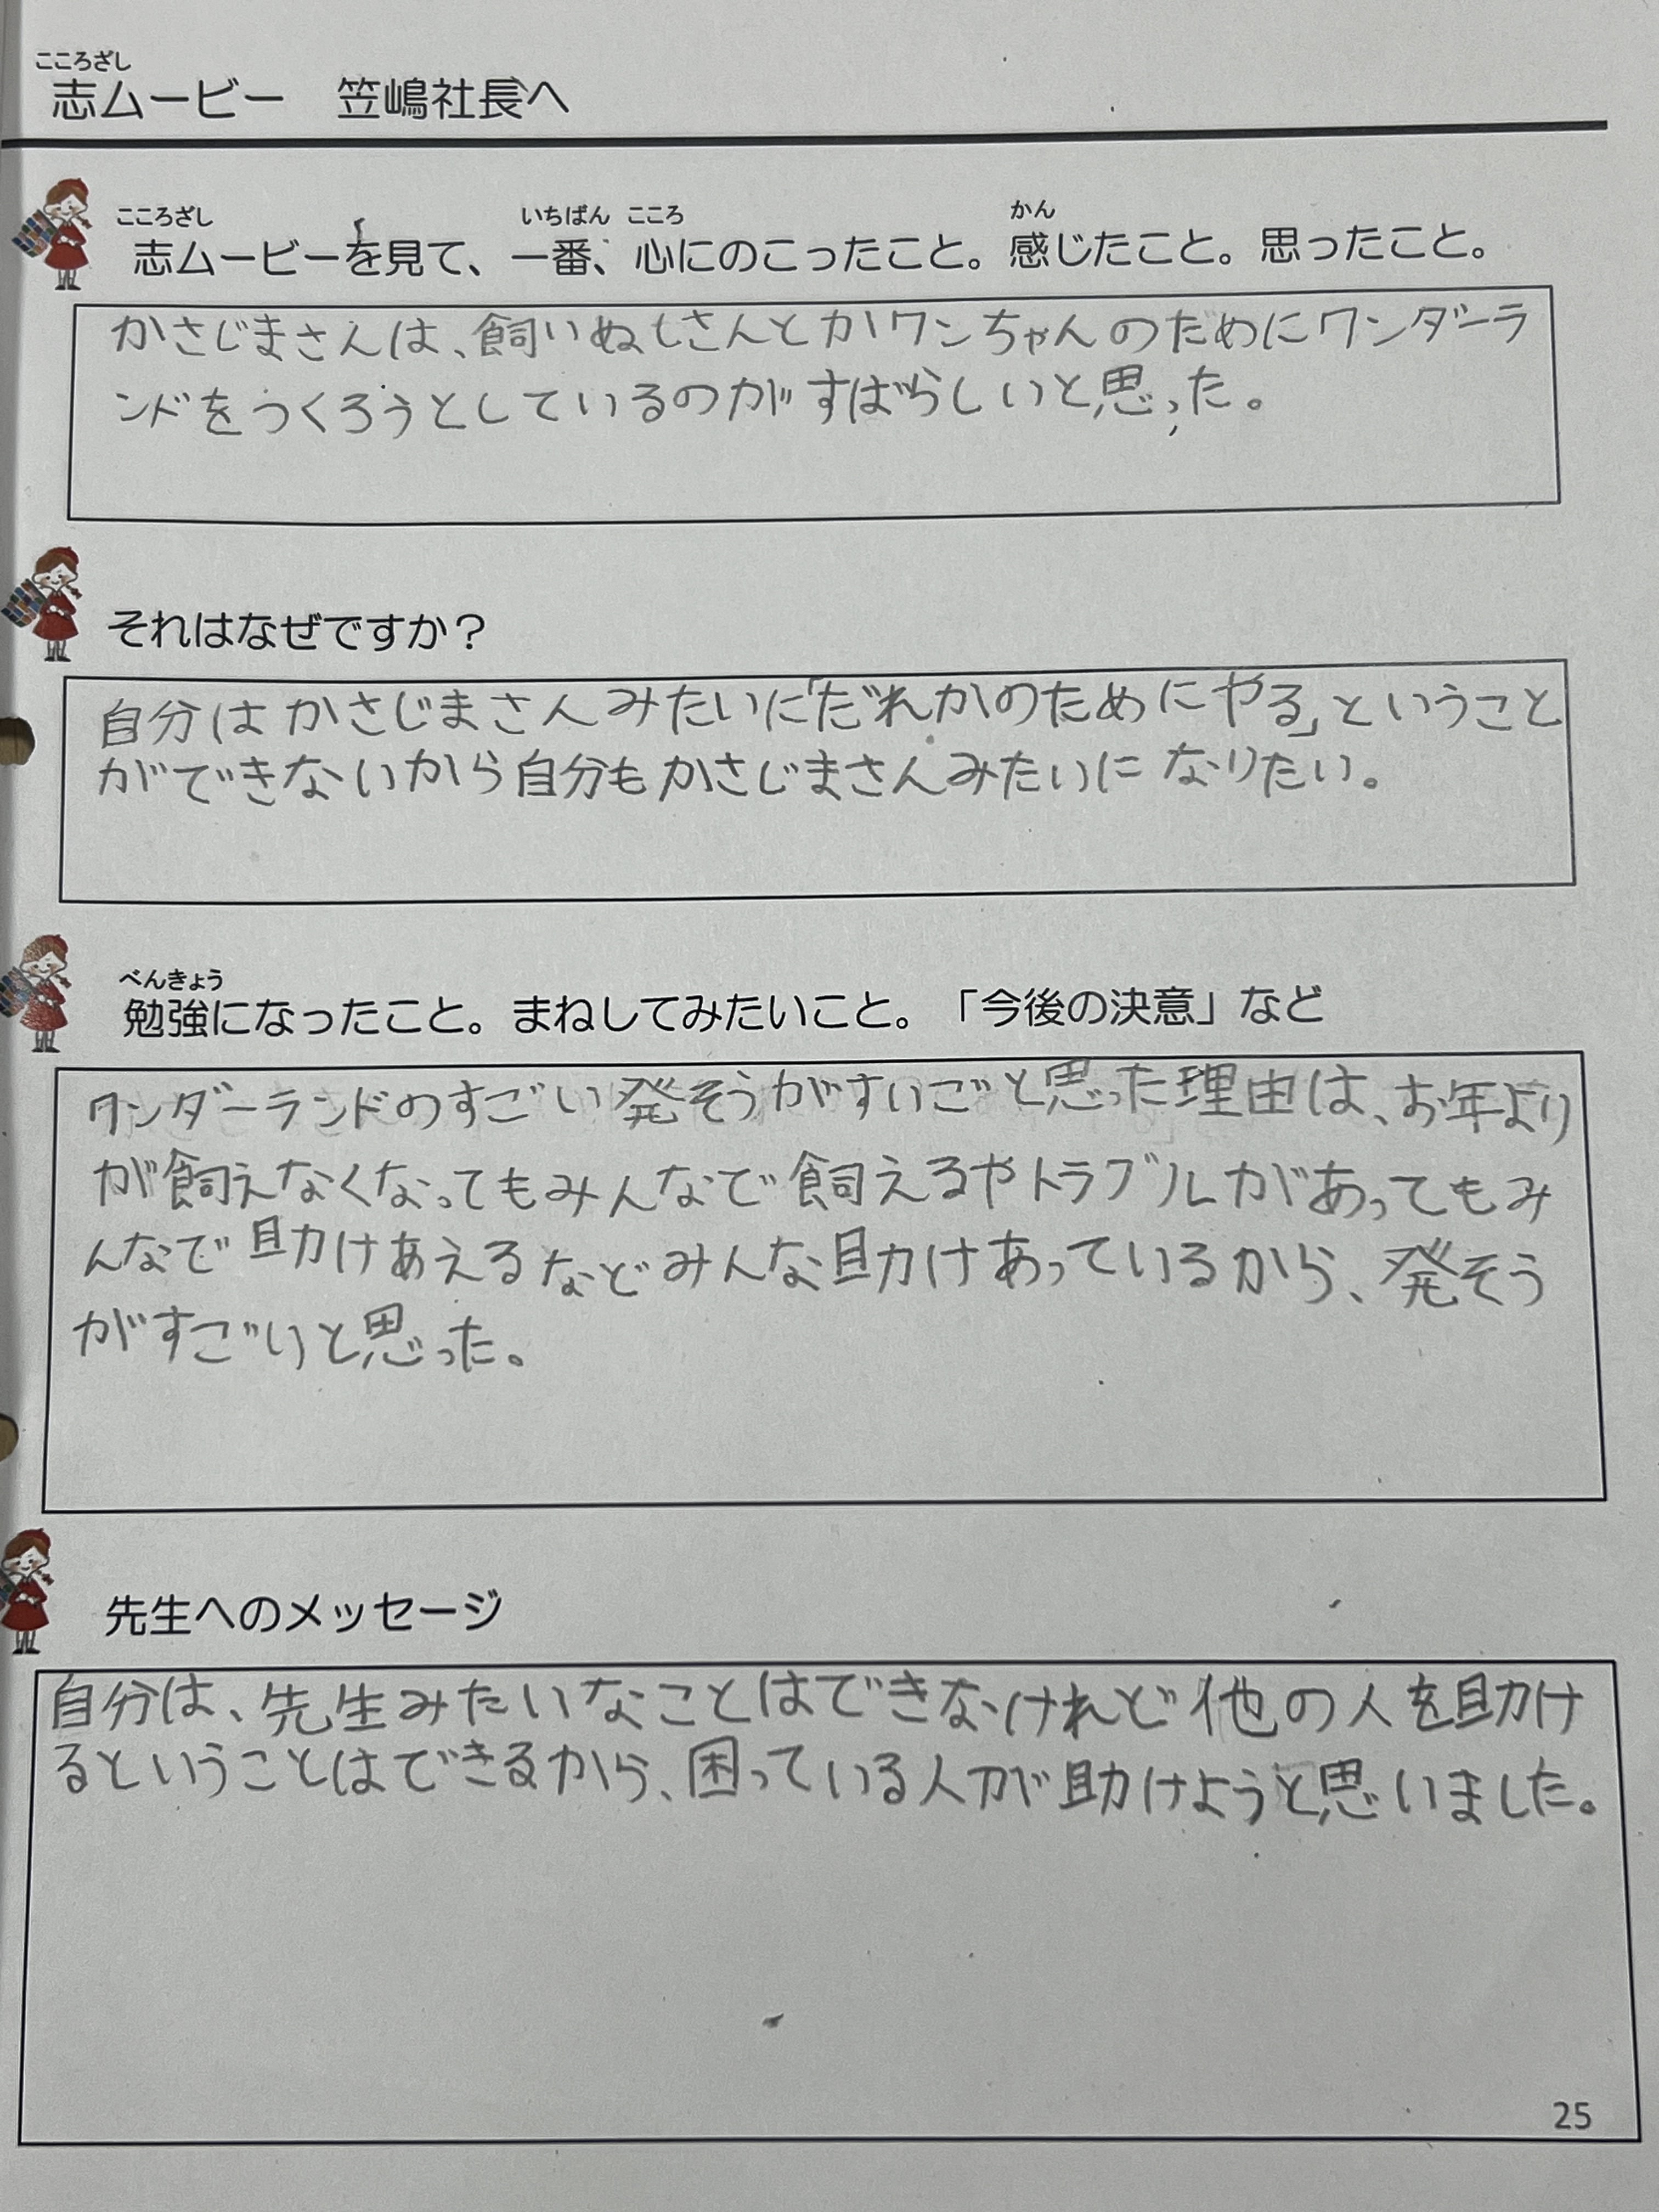 こころざし
志ムービー　笠嶋社長へ
こころざし　いちばん　こころ　かん
志ムービーを見て、一番、心にのこったこと。感じたこと。思ったこと。
かさじまさんは、飼いぬしさんとかワンちゃんのためにワンダーラ
ンドをつくろうとしているのがすばらしいと思った。
それはなぜですか？
自分はかさじまさんみたいに「だれかのためにやる」ということ
ができないから自分もかさじまさんみたいになりたい。
べんきょう
勉強になったこと。まねしてみたいこと。「今後の決意」など
ワンダーランドのすごい発そうがすいごと思った理由は、お年より
が飼えなくなってもみんなで飼えるやトラブルがあってもみ
んなで助けあえるなどみんな助けあっているから、発そう
がすごいと思った。
先生へのメッセージ
自分は、先生みたいなことはできなけれど他の人を助け
るということはできるから、困っている人が助けようと思いました。
25